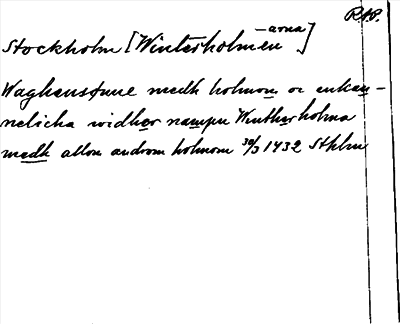 RAP.
Stockholm [Winterholmen -arna]
Waghensunne medh holmom oc enkan-
nelicha widher nampn Wintherholma
medh allom androm holmom 30/3 1432 Sthlm